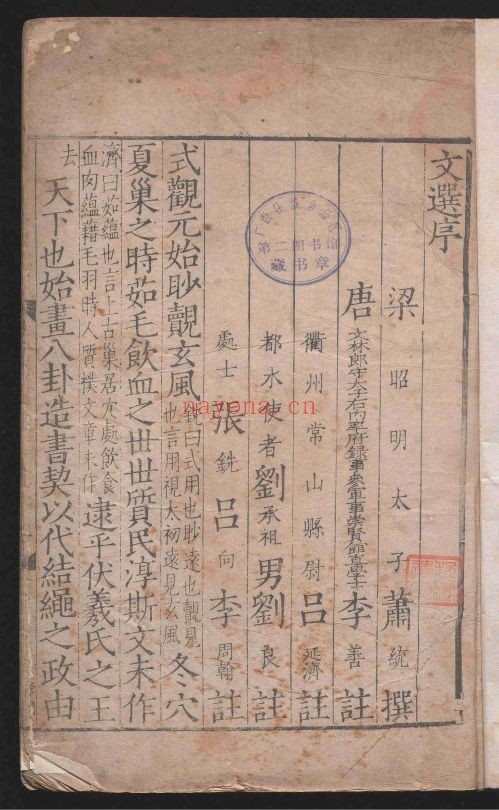 文選序
梁 昭明太子蕭統撰
唐 文林郎守太子右內率府錄事參軍事崇賢館直學士李善註
衢州常山縣尉呂延濟註
都水使者劉承祖男劉良註
處士張銑呂向李周翰註
式觀元始眇覿玄風
銑曰式用也眇遠也覿見
也言用視太初遠見玄風
冬穴
夏巢之時茹毛飲血之世世質民淳斯文未作
濟曰茹蘊也言上古巢居穴處飲食
血肉蘊藉毛羽時人質樸文章未作
逮乎伏羲氏之王
去
天下也始畫八卦造書契以代結繩之政由
第二图书馆
藏书章
nayona.cn